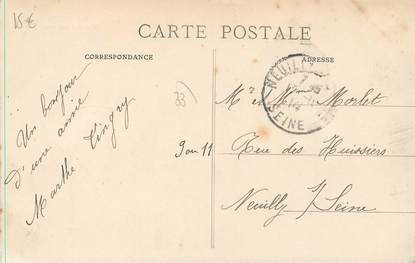 15€
CARTE POSTALE
CORRESPONDANCE
ADRESSE
Un bonjour
d'une amie
Marthe Tingry
33
NEUILLY
SEINE
Mr et Mme Morlet
9 ou 11 Rue des Huissiers
Neuilly s/ Seine